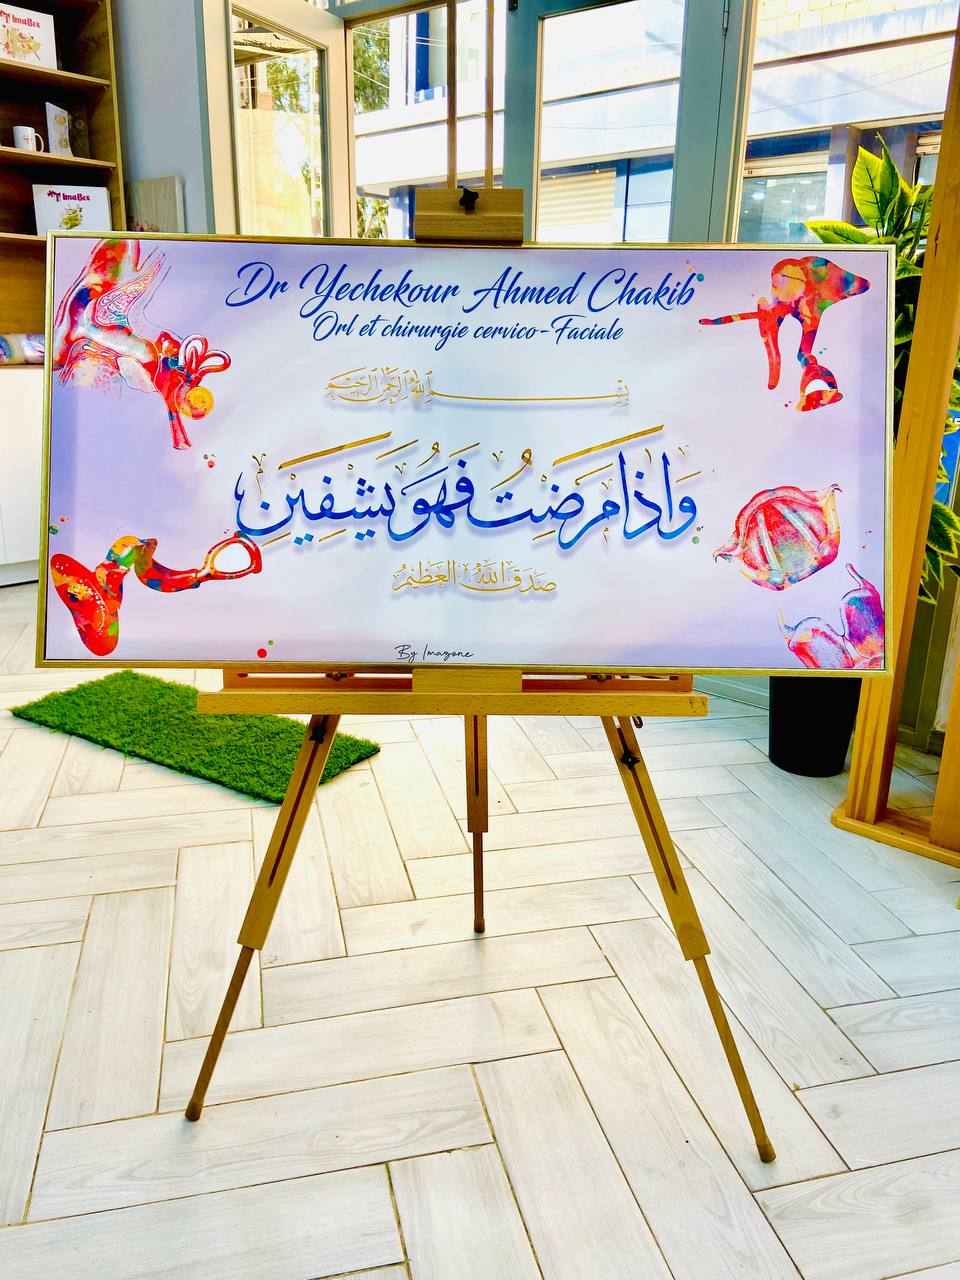 ImaBox
ImaBox
Dr Yechekour Ahmed Chakib
Orl et chirurgie cervico-Faciale
بسم الله الرحمن الرحيم
وَاِذَا مَرِضْتُ فَهُوَ يَشْفِينِ
صدق الله العظيم
By Imazone